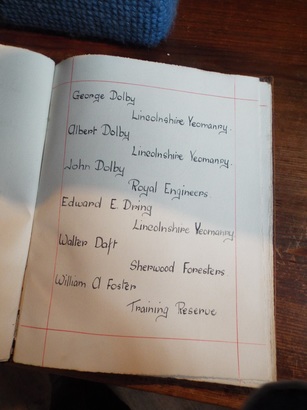 George Dolby
Lincolnshire Yeomanry.
Albert Dolby
Lincolnshire Yeomanry.
John Dolby
Royal Engineers
Edward E. Dring
Lincolnshire Yeomanry
Walter Daft
Sherwood Foresters
William A Foster
Training Reserve